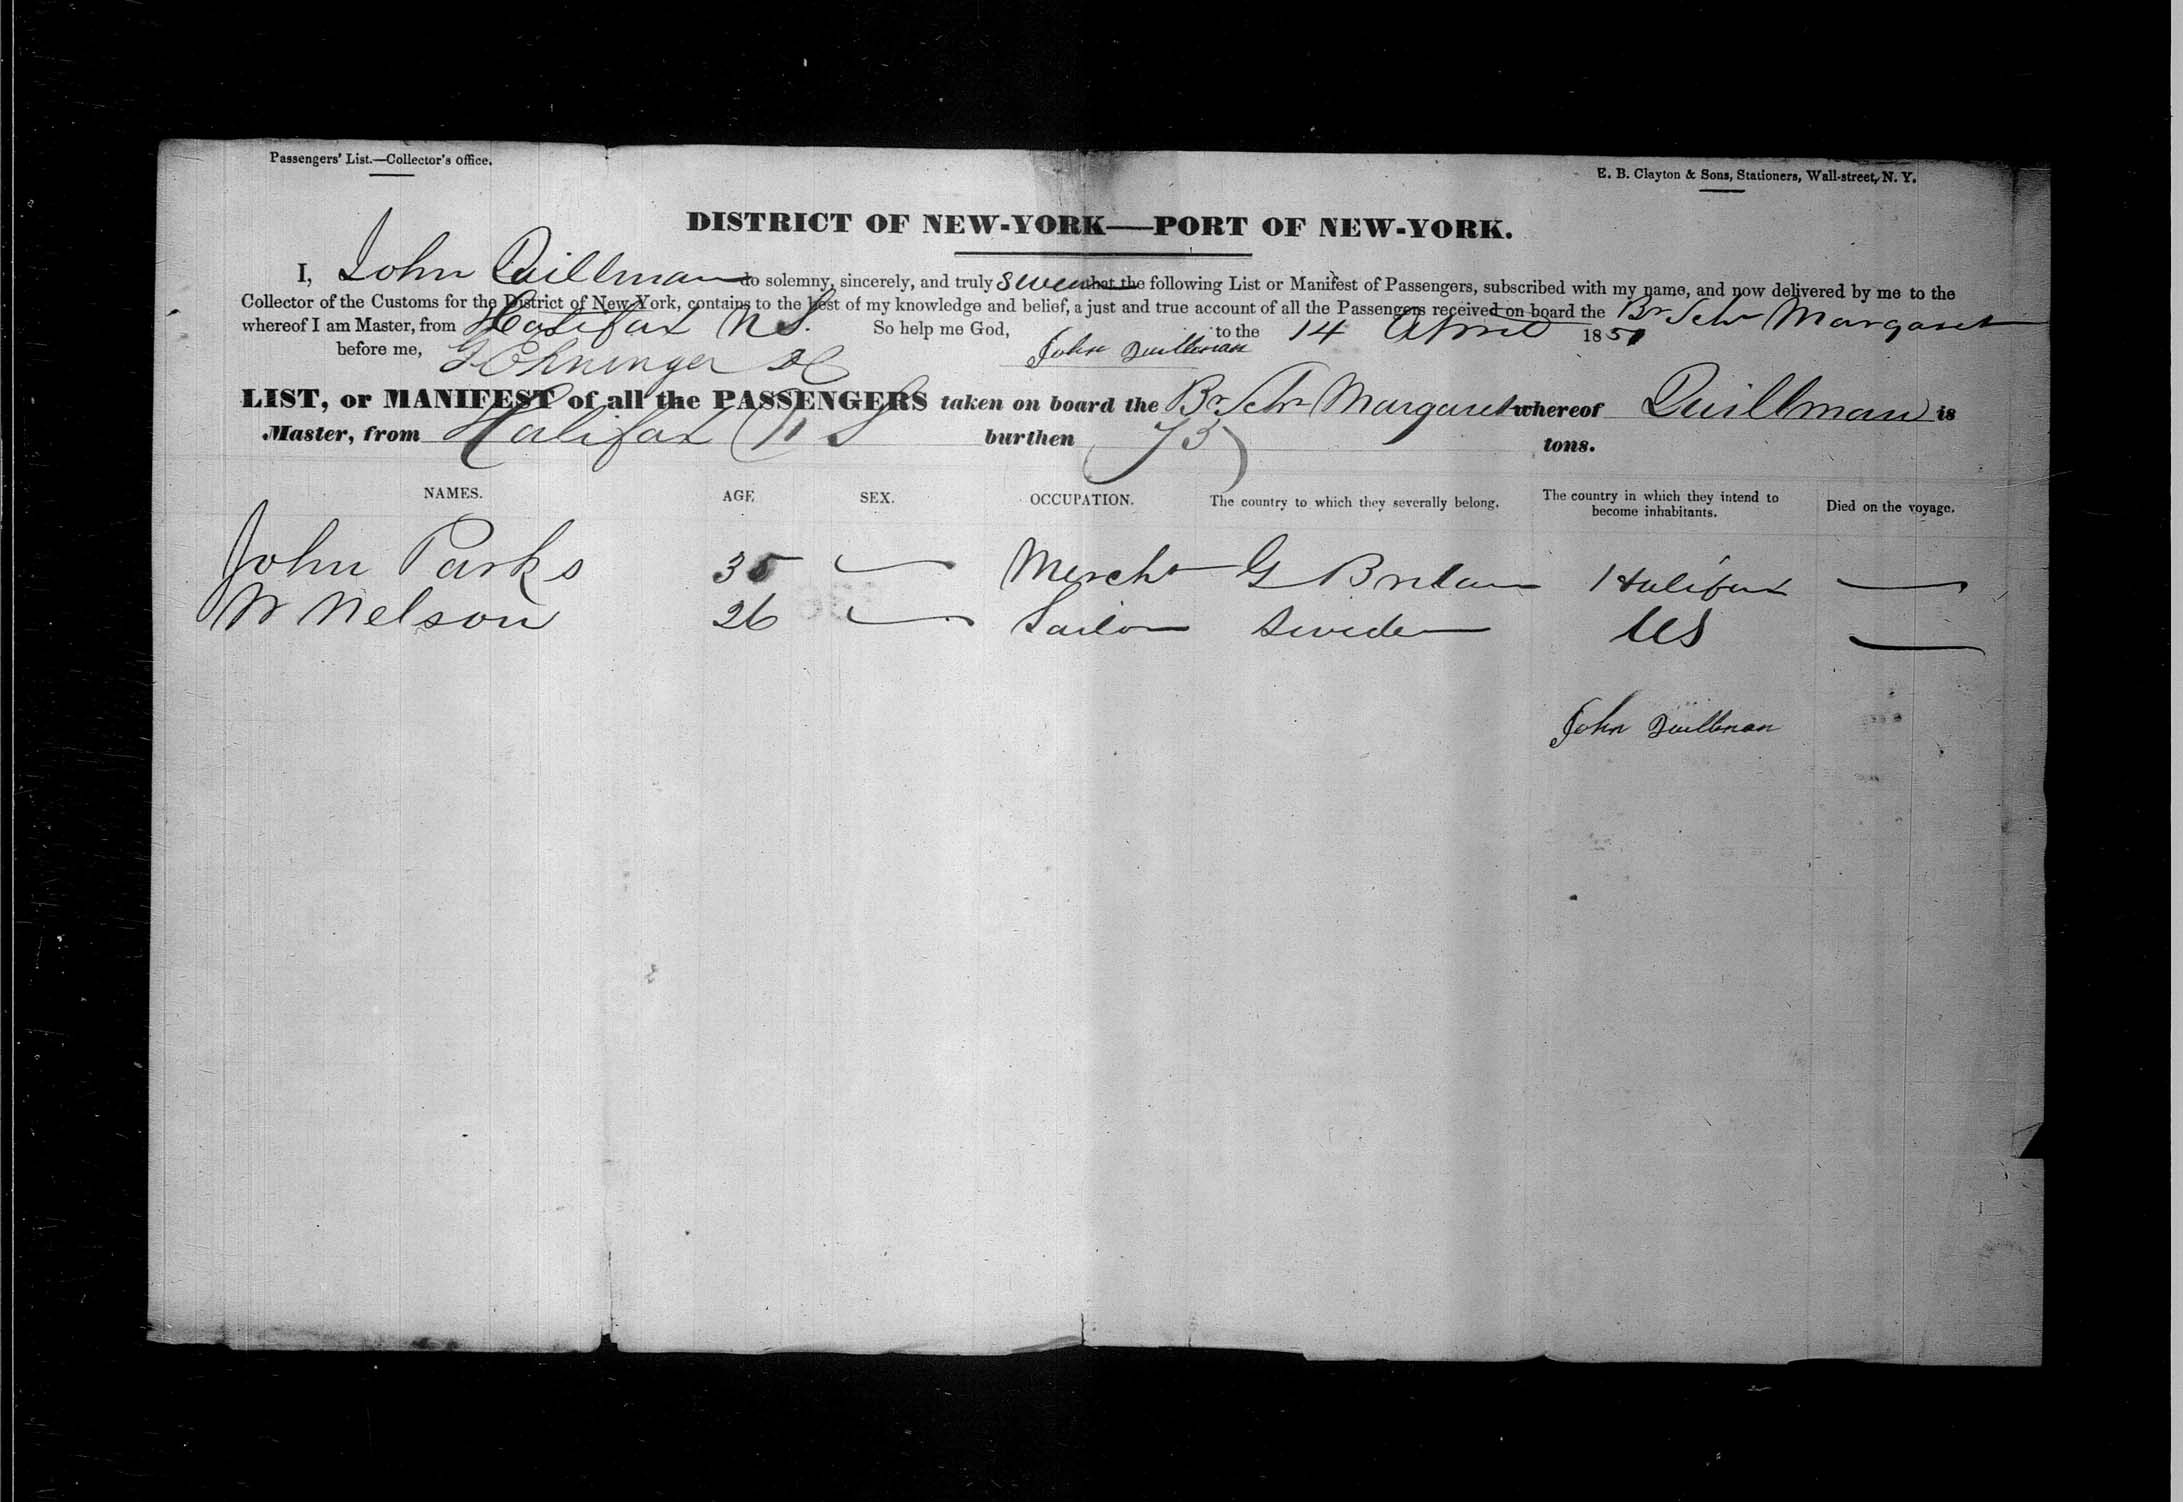 Passengers' List.—Collector's Office.
E. B. Clayton & Sons, Stationers, Wall-street, N. Y.
DISTRICT OF NEW-YORK—PORT OF NEW-YORK.
I, John Quillman do solemny, sincerely, and truly swear that the following List or Manifest of Passengers, subscribed with my name, and now delivered by me to the
Collector of the Customs for the District of New York, contains to the best of my knowledge and belief, a just and true account of all the Passengers received on board the Br Schr Margaret
whereof I am Master, from Halifax N S. So help me God, to the 14 April 1851
before me, John Quillman
LIST, or MANIFEST of all the PASSENGERS taken on board the Br Schr Margaret whereof Quillman is
Master, from Halifax N S burthen 73 tons.
NAMES. AGE SEX. OCCUPATION. The country to which they severally belong. The country in which they intend to become inhabitants. Died on the voyage.
John Parks 35 — Mercht G Britain Halifax —
W Nelson 26 — Sailor Sweden US —
John Quillman